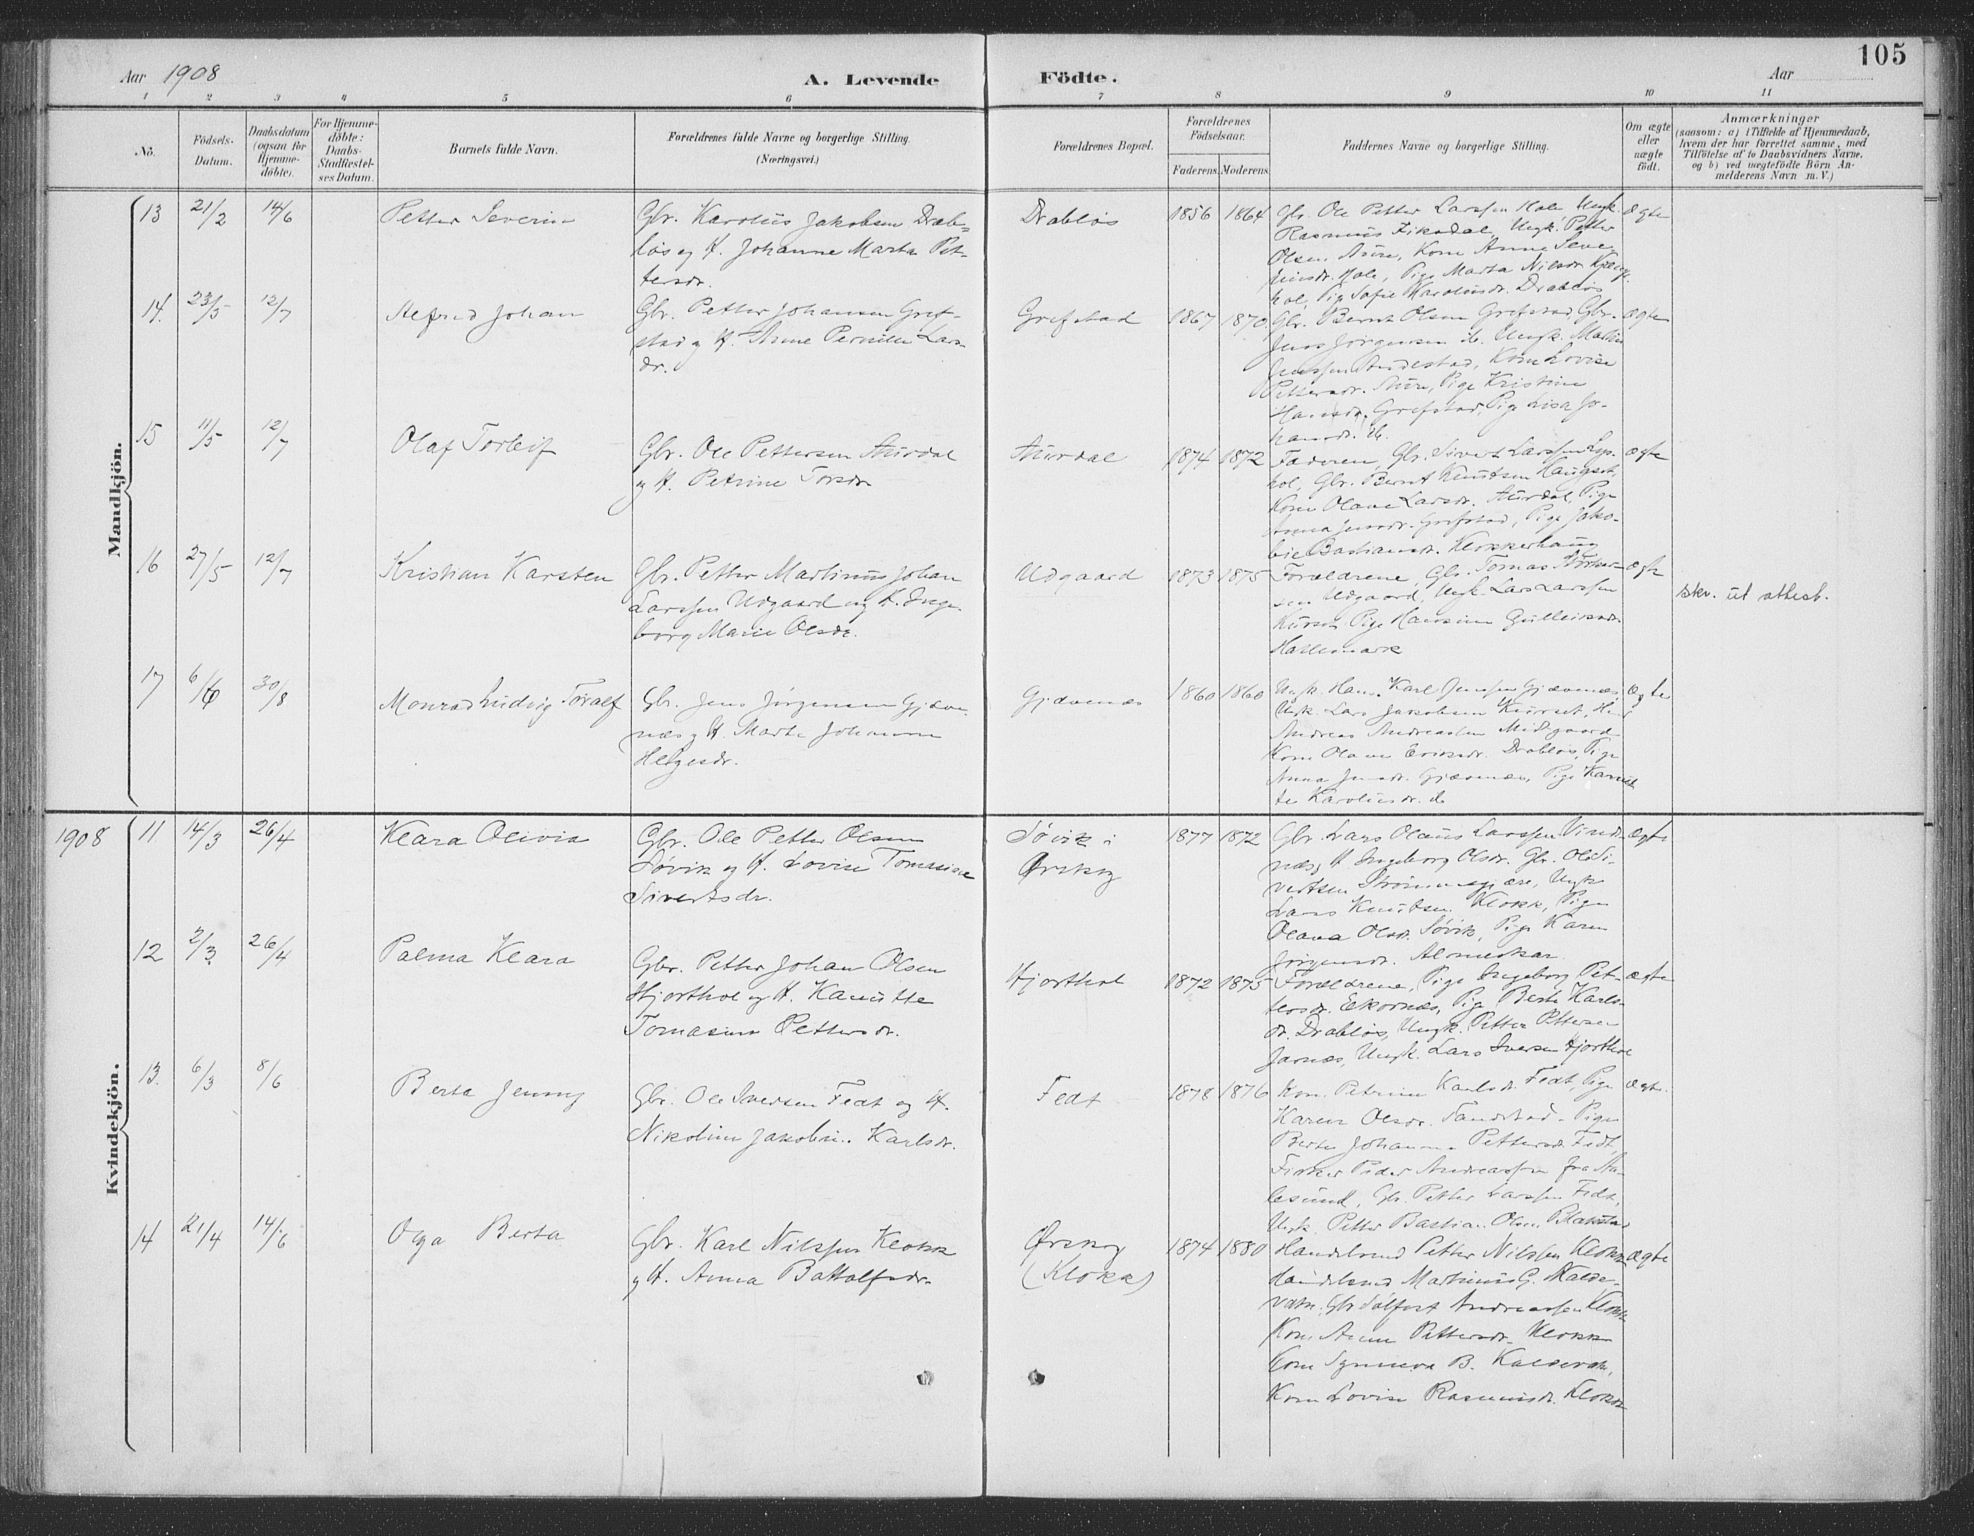 105
Aar 1908
A. Levende Födte.
Aar
1 2 3 4 5 6 7 8 9 10 11
No.
Födsels-Datum.
Daabsdatum (ogsaa for Hjemmedöbte).
For Hjemmedöbte: Daabs-Stadfestelses Datum.
Barnets fulde Navn.
Forældrenes fulde Navne og borgerlige Stilling. (Næringsvei.)
Forældrenes Bopæl.
Forældrenes Födselsaar.
Faderens. Moderens.
Faddernes Navne og borgerlige Stilling.
Om ægte eller uægte födt.
Anmærkninger
(saasom: a) i Tilfælde af Hjemmedaab,
hvem der har forrettet samme, med
Tilföielse af to Daabsvidners Navne,
og b) ved uægtefödte Börn An-
melderens Navn m. V.)
Mandkjön.
13 21/2 14/6 Petter Severin
Gbr. Karolus Jakobsen Drab-
løs og H. Johanne Marta Pet-
tersdr.
Drabløs 1856 1864
Gbr. Ole Petter Larssen Hole Ungk.
Rasmus Fiksdal, Ungk. Petter
Olsen Aure, Kone Anne Seve-
rinsdr. Hole, Pige Marta Nilsdr.
Pige Sofie Karolusdr. Drabløs
ægte
14. 23/5 12/7 Alfred Johan
Gbr. Petter Johansen Gref-
stad og H. Anne Pernille Lars-
dr.
Grefstad 1867 1870
Gbr. Bernt Olsen Grefstad, Gbr.
Jens Jørgensen ib. Ungk. Martin
Jenssen Andestad, Kone Lovise
Pettersdr. Aure, Pige Kristine
Hansdr. Grefstad, Pige Lisa Jo-
hansdr. ib.
ægte
15 11/5 12/7 Olaf Torleif
Gbr. Ole Pettersen Aurdal
og H. Petrine Torsdr.
Aurdal 1874 1872
Faderen, Gbr. Sivert Larssen
Gbr. Bernt Knutsen Haugset,
Kone Olave Larsdr. Aurdal, Pige
Anna Jensdr. Grefstad, Pige Jako-
bie Bastiansdr. Klokkerhaug
ægte
16 27/5 12/7 Kristian Karsten
Gbr. Petter Martinus Johan
Larssen Udgaard og H. Inge-
borg Marie Olsdr.
Udgaard 1873 1875
Forældrene, Gbr. Tomas
Udgaard, Ungk. Lars Larssen
Kurset, Pige Hansine Gulleiksdr.
ægte
skr. ut attest.
17 6/6 30/8 Monrad Ludvig Toralf
Gbr. Jens Jørgensen Gjæve-
næs og H. Marta Johanne
Helgesdr.
Gjævenæs 1860 1860
Ungk. Hans Karl Jenssen Gjævenæs,
Ungk. Lars Jakobsen Kurset,
Andreas Andreassen Midgaard
Kone Olave Eriksdr. Drabløs, Pige
Anna Jensdr. Gjævenæs, Pige Karnit-
te Karolusdr. do
ægte
Kvindekjön.
1908 11 14/3 26/4 Klara Olivia
Gbr. Ole Petter Olsen
Søvik og H. Lovise Tomasine
Sivertsdr.
Søvik i
Ørskog
1877 1872
Gbr. Lars Olaus Larssen Vind-
næs, H. Ingeborg Olsdr. Gbr. Ole Si-
vertsen Strømmegjære, Ungk
Lars Knutsen Klokk, Pige
Olava Olsdr. Søvik, Pige Karen
Jørgensdr. Almeskar
ægte
12 2/3 26/4 Palma Klara
Gbr. Petter Johan Olsen
Hjorthol og H. Kanutte
Tomasine Pettersdr.
Hjorthol 1872 1875
Forældrene, Pige Ingeborg Pet-
tersdr. Ekornæs, Pige Berte Karls-
dr. Drabløs, Ungk. Petter Pettersen
Jarnæs, Ungk. Lars Iversen Hjorthol
ægte
13. 6/3 8/6 Berta Jenny
Gbr. Ole Iversen Fedt og H.
Nikoline Jakobin. Karlsdr.
Fedt 1878 1876
Kone Petrine Karlsdr. Fedt, Pige
Karen Olsdr. Sandstad. Pige
Berte Johanne Pettersdr. Fedt,
Fisker Peder Andreassen fra Aa-
lesund, Gbr. Petter Larssen Fedt,
Ungk. Petter Bastian Olsen
ægte.
14 21/4 14/6 Olga Berta
Gbr. Karl Nilssen Klokk
og H. Anna Battolfsdr.
Ørskog
(Klokk)
1874 1880
Handelsmd Petter Nilssen Klokk
Handelsmd Martinus G. Kalde-
vatn. Gbr. Sølfest Andreassen Klokk
Kone Anne Pettersdr. Klokk
Kone Synneva B. Kaldevatn,
Kone Lovise Rasmusdr. Klokk
ægte